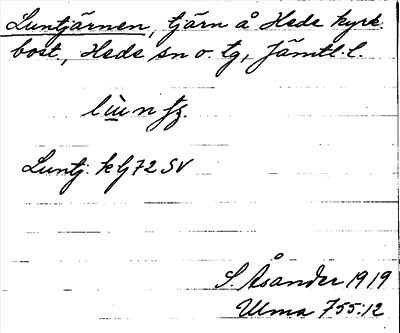 Luntjärnen, tjärn å Hede kyrk
bost., Hede sn o. tg, Jämtl. l.
Luntj. k bj 72 SV
S. Åsander 1919
Ulma 755:12